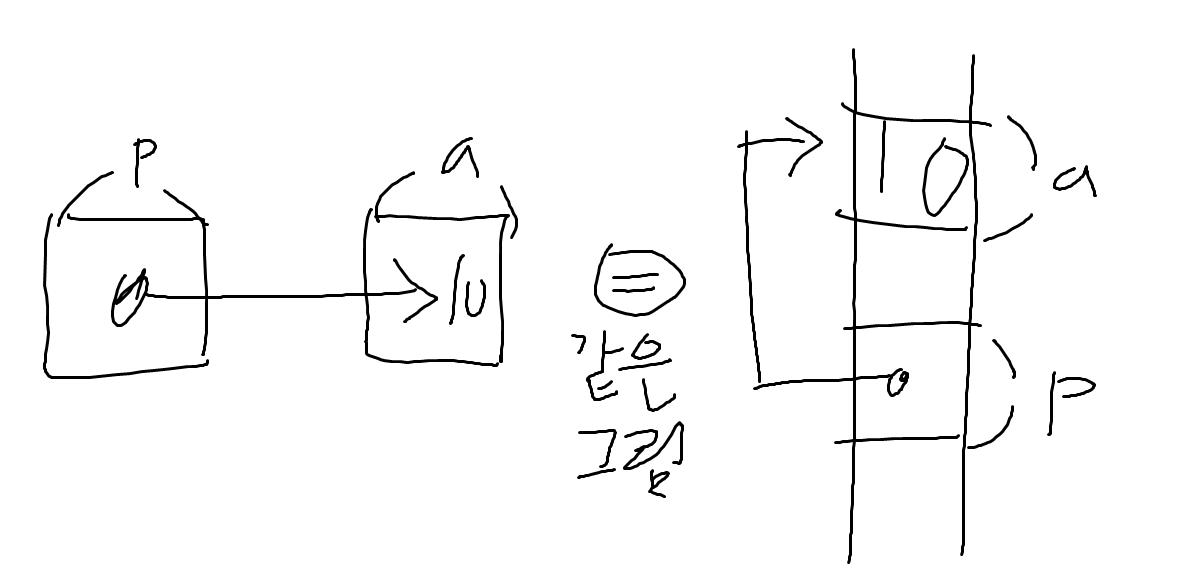 p
a
10
=
같은
그림
10
a
p